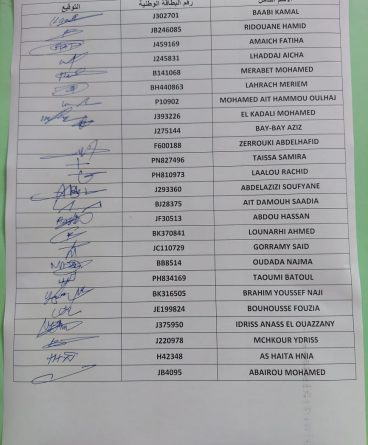 التوقيع رقم البطاقة الوطنية
J302701 BAABI KAMAL
JB246085 RIDOUANE HAMID
J459169 AMAICH FATIHA
J245831 LHADDAJ AICHA
B141068 MERABET MOHAMED
BH440863 LAHRACH MERIEM
P10902 MOHAMED AIT HAMMOU OULHAJ
J393226 EL KADALI MOHAMED
J275144 BAY-BAY AZIZ
F600188 ZERROUKI ABDELHAFID
PN827496 TAISSA SAMIRA
PH810973 LAALOU RACHID
J293360 ABDELAZIZI SOUFYANE
BJ28375 AIT DAMOUH SAADIA
JF30513 ABDOU HASSAN
BK370841 LOUNARHI AHMED
JC110729 GORRAMY SAID
BB8514 OUDADA NAJMA
PH834169 TAOUMI BATOUL
BK316505 BRAHIM YOUSSEF NAJI
JE199824 BOUHOUSSE FOUZIA
J375950 IDRISS ANASS EL OUAZZANY
J220978 MCHKOUR YDRISS
H42348 AS HAITA HNIA
JB4095 ABAIROU MOHAMED